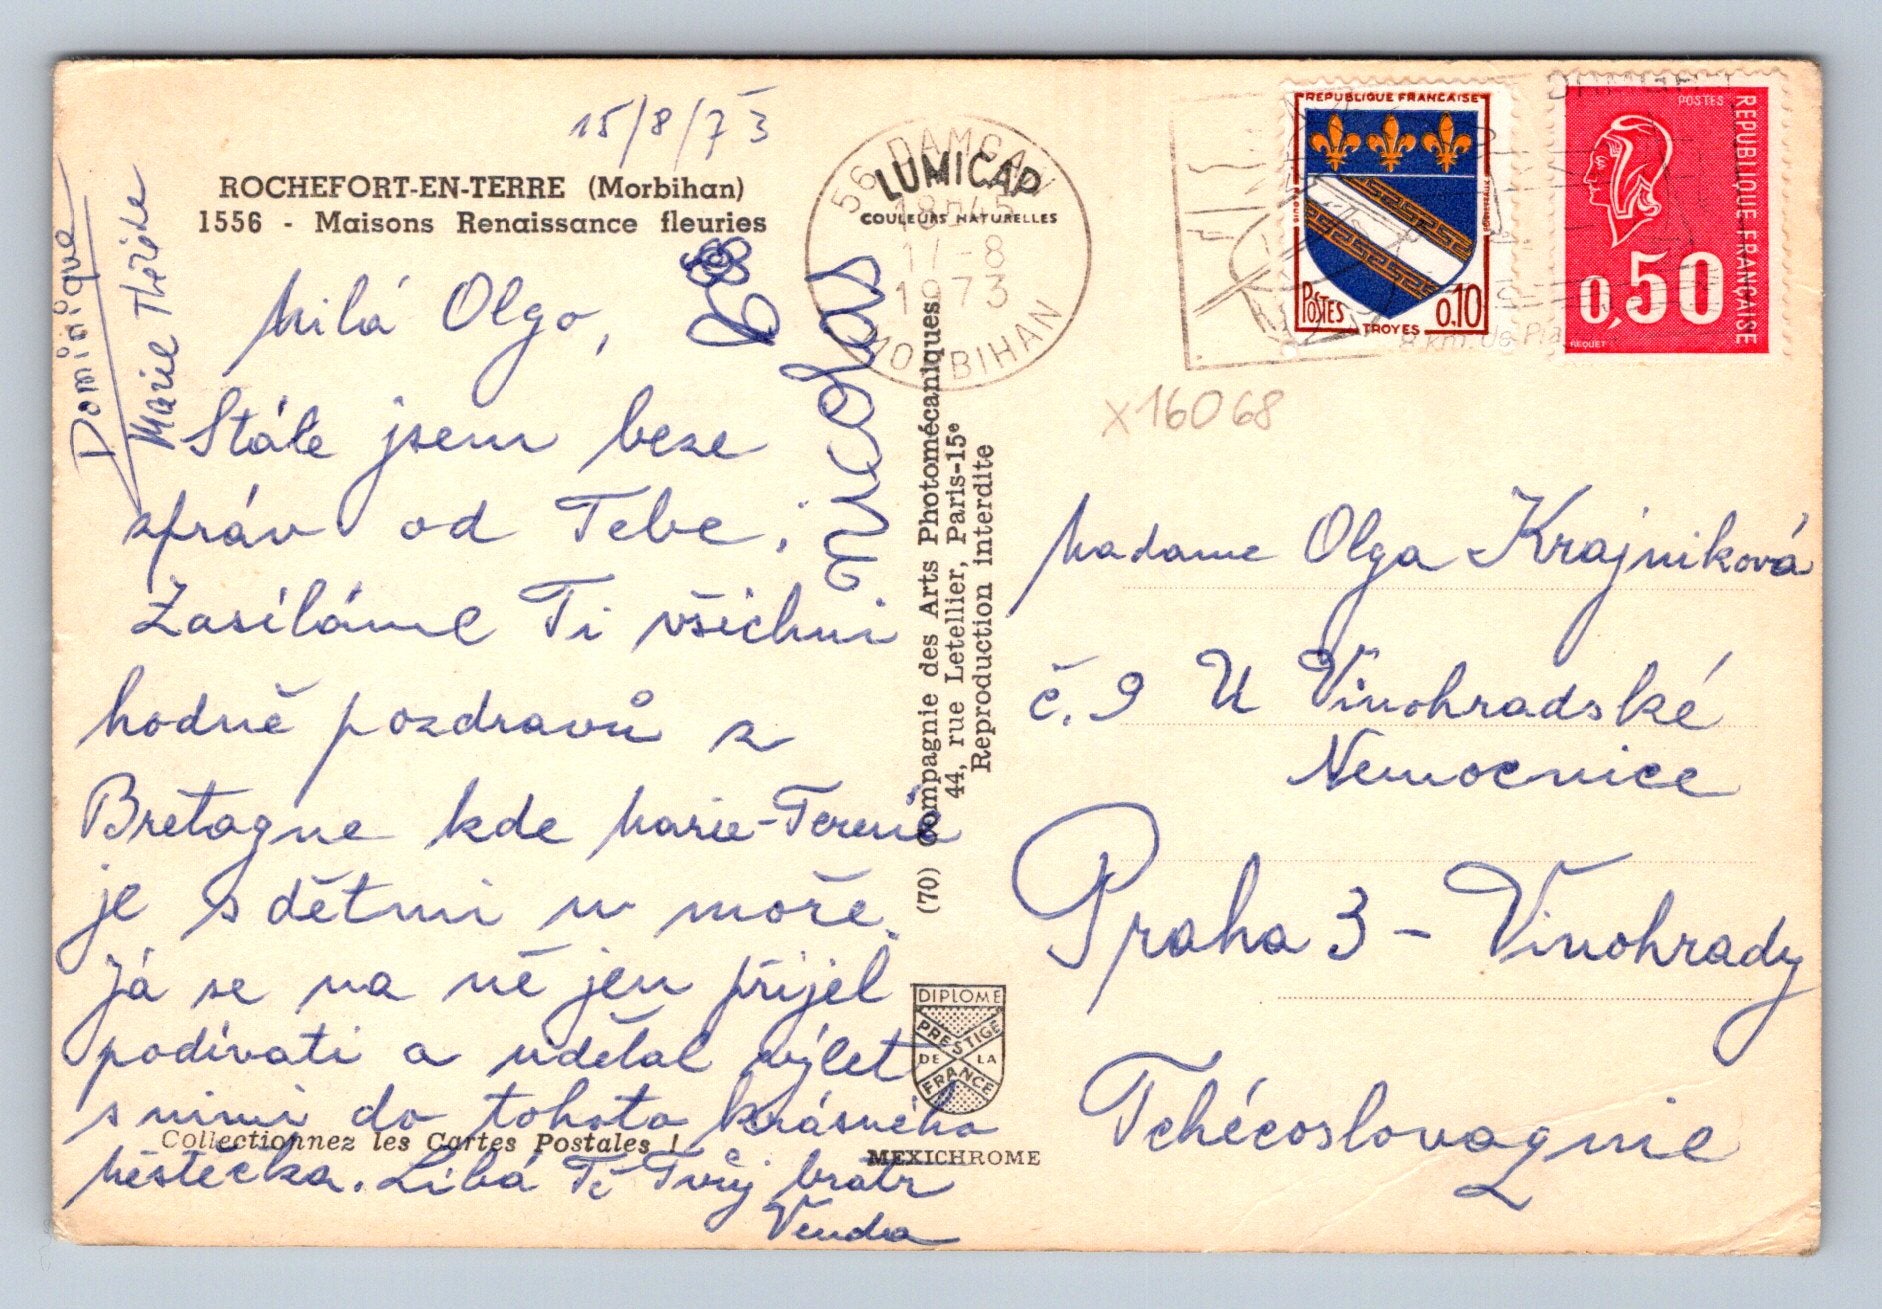 15/8/73
ROCHEFORT-EN-TERRE (Morbihan)
1556 - Maisons Renaissance fleuries
Dominique
Marie Thérèse
Milá Olgo,
Stále jsem beze
zpráv od Tebe.
Zasíláme Ti všichni
hodně pozdravů z
Bretagne kde Marie-Terezie
je s dětmi u moře.
Já se na ně jen přijel
podívati a udělal výlet
s nimi do tohoto krásného
městečka. Líbá Tě Tvůj bratr
Venda
Nicolas
Collectionnez les Cartes Postales !
LUMICAP
COULEURS NATURELLES
56 DAMGAN
18H45
17-8
1973
MORBIHAN
(70) Compagnie des Arts Photomécaniques
44, rue Letellier, Paris-15e
Reproduction interdite
DIPLOME
PRESTIGE
DE LA
FRANCE
MEXICHROME
REPUBLIQUE FRANCAISE
POSTES
0,10
TROYES
POSTES
REPUBLIQUE FRANÇAISE
0,50
BEQUET
8 km. de Pla
x16068
Madame Olga Krajníková
č. 9 U Vinohradské
Nemocnice
Praha 3 - Vinohrady
Tchécoslovaquie